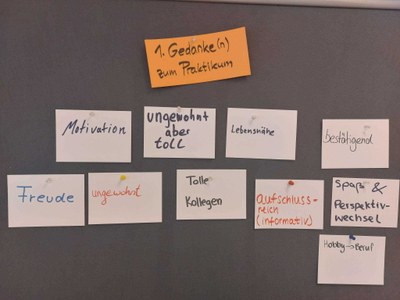 1. Gedanke(n)
zum Praktikum
Motivation
ungewohnt
aber
toll
Lebensnähe
bestätigend
Freude
ungewohnt
Tolle
Kollegen
aufschluss-
reich
(informativ)
Spaß &
Perspektiv-
wechsel
Hobby → Beruf